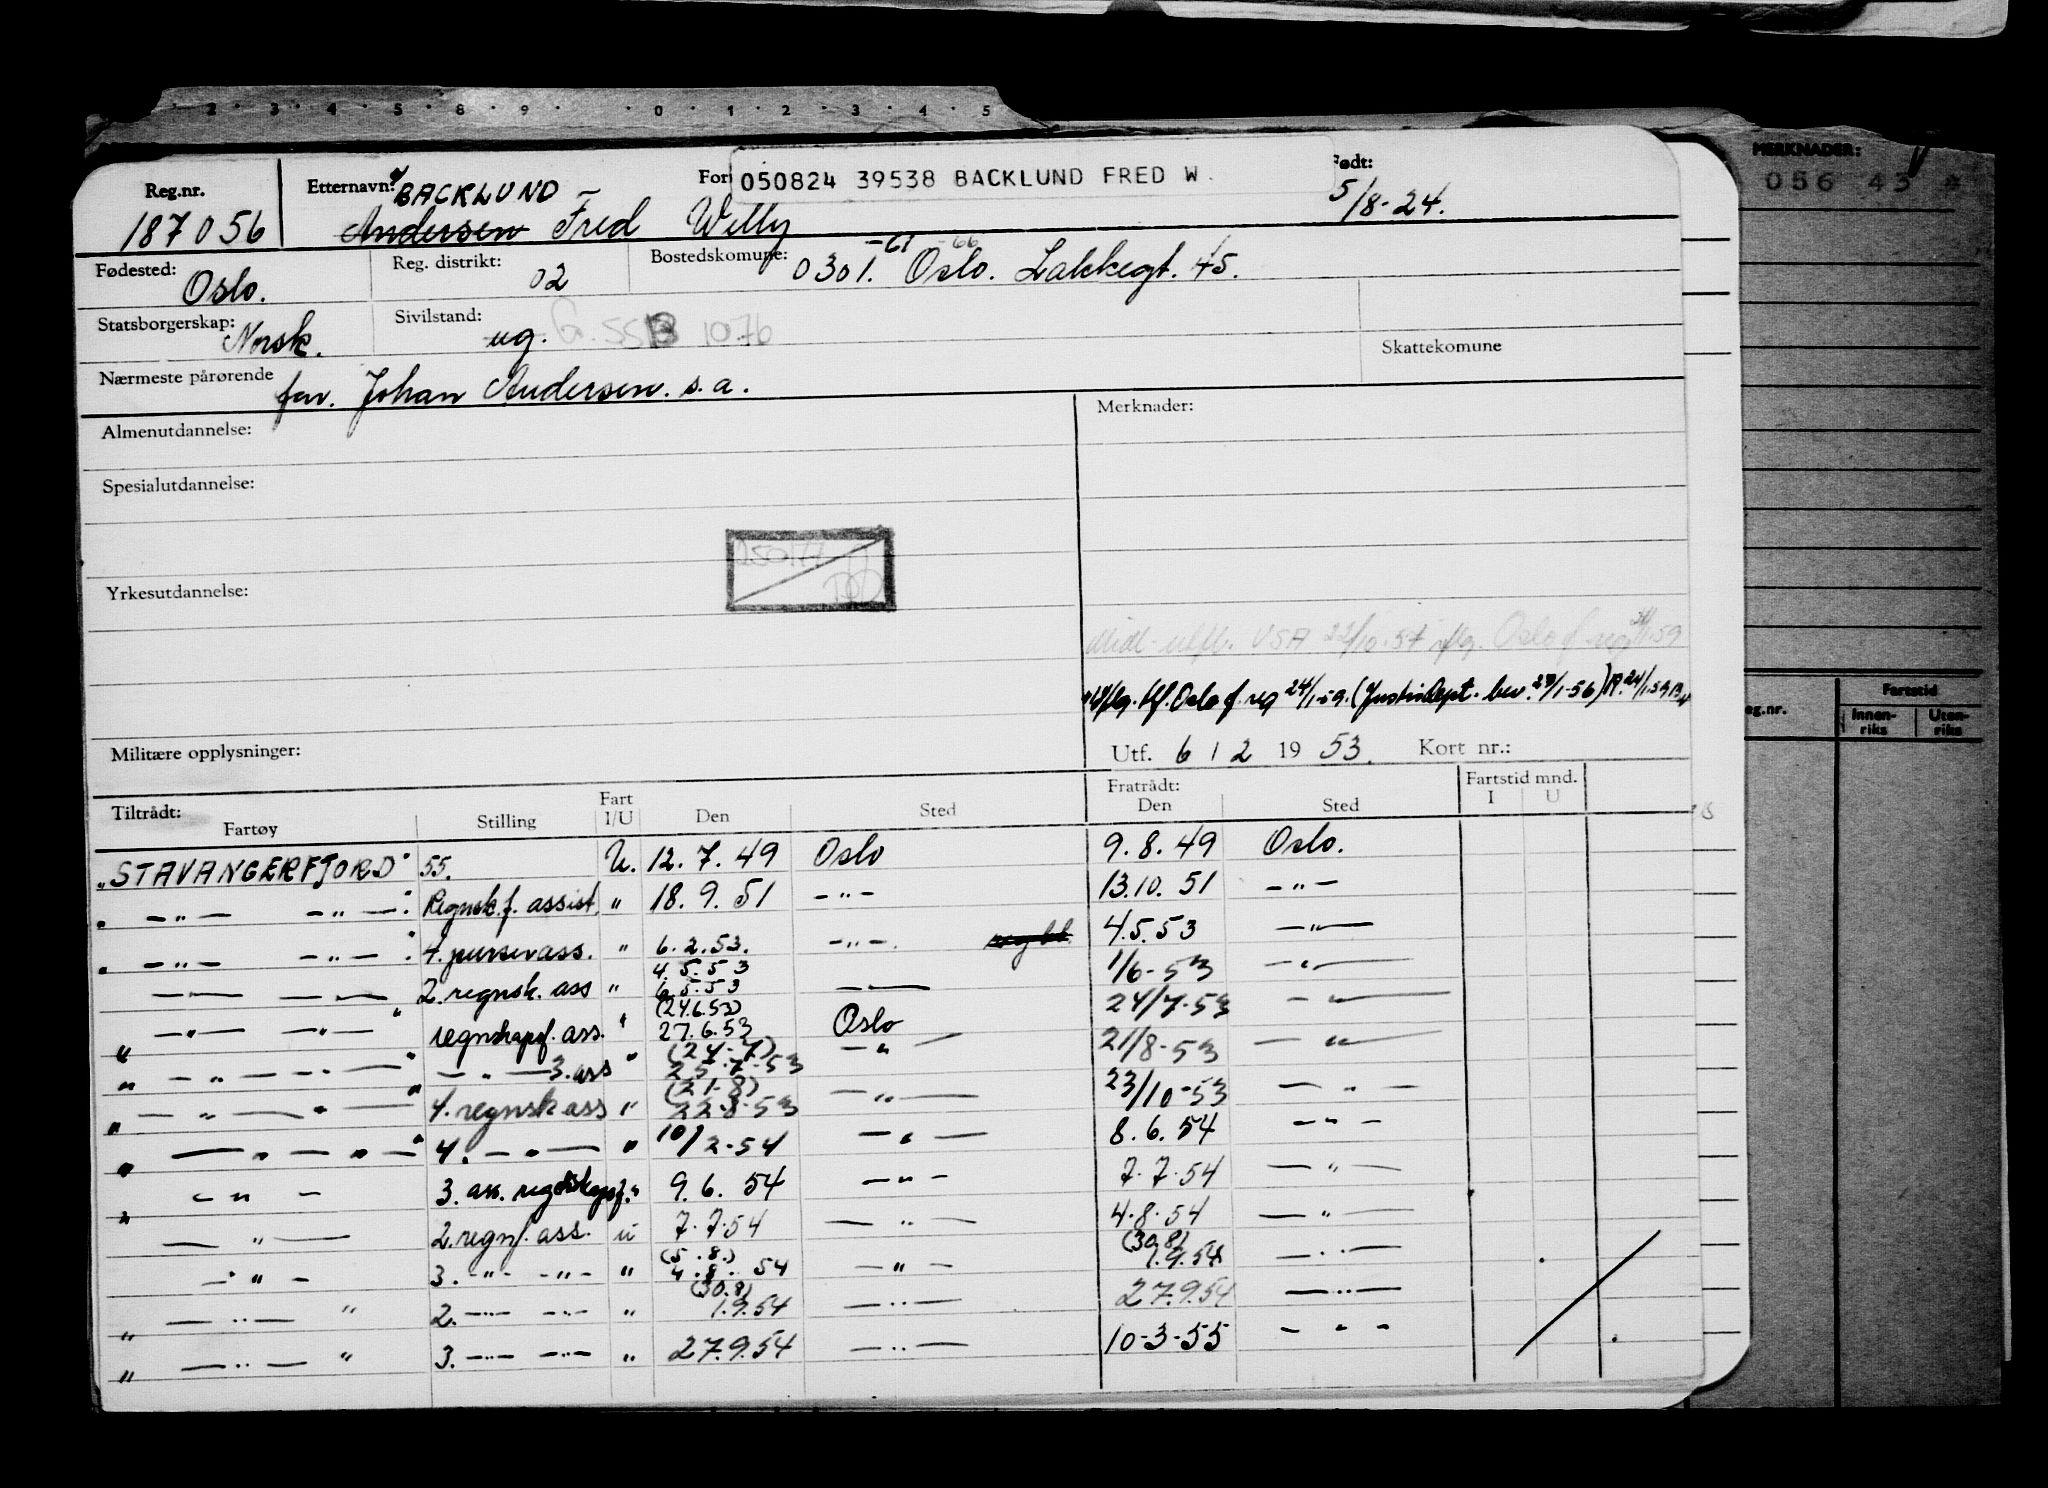 2 · 3 · 4 · 5 · 8 · 9 · 0 · 1 2 · 3 · 4 · 5
MERKNADER:
056 43 *
Reg.nr. Etternavn: For 050824 39538 BACKLUND FRED W. Født:
BACKLUND
187056 Andersen Fred Willy 5/8-24.
Fødested: Oslo. Reg. distrikt: 02 Bostedskomune: 0301. -61 -66 Oslo. Lakkegt. 45.
Statsborgerskap: Norsk. Sivilstand: ug. G. 55 B 1076 Skattekomune
Nærmeste pårørende far. Johan Andersen. s. a.
Almenutdannelse: Merknader:
Spesialutdannelse:
Yrkesutdannelse:
USA 22/10-57 Oslo f. reg 59
Oslo f. reg 24/1-59. (Justisdept. bev. 23/1-56)
Militære opplysninger: Utf. 6 / 2 1953. Kort nr.:
eg.nr. Fartstid
Innen-riks Uten-riks
Tiltrådt: Fratrådt: Fartstid mnd.
Fartøy Stilling Fart I/U Den Sted Den Sted I U
"STAVANGERFJORD" 55. U. 12. 7. 49 Oslo 9. 8. 49 Oslo.
" — " — — " — " Regnsk.f. assist. " 18. 9. 51 — " — 13.10. 51 — " —
" — " — — " — " 4. purserass. " 6. 2. 53. — " — 4.5.53 — " —
4. 5. 53
— — — — 2. regnsk. ass " 6.5.53 — — 1/6-53 — " —
(24.6.53)
" — " — — " — " regnskapsf. ass. " 27.6.53 Oslo 24/7-53 — " —
(24-7)
" — " — " — " — " — 3. ass " 25-7-53 — " 21/8-53 — " —
(21-8)
" — " — " — " 4. regnsk ass " 22-8-53 — " — 23/10-53 — " —
" — " — " — " 4. — " — " 10/2-54 — " — 8. 6. 54 — " —
" — " — 3. ass. regnskapsf. " 9. 6. 54 — " — 7. 7. 54 — " —
— " — 2. regnf. ass. u 7. 7. 54 — " — 4. 8. 54 — " —
(5. 8.) (30.8)
— " — 3. — " — — " — " 4. 8. 54 — " — 1.9.54 — " —
(30.8)
" — " — " 2. — " — — " — " 1.9.54 — " — 27.9.54 — " —
" — " — " 3. — " — — " — " 27.9.54 — " — 10-3-55 — " —